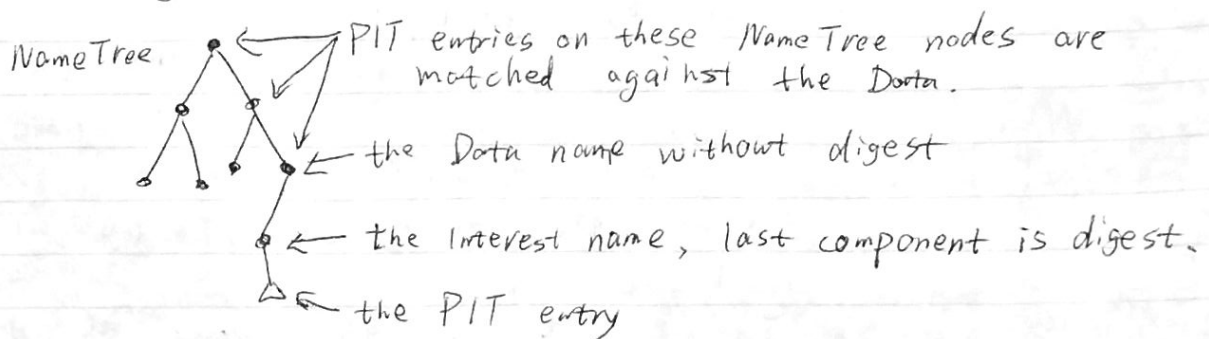 NameTree
PIT entries on these NameTree nodes are
matched against the Data.
the Data name without digest
the Interest name, last component is digest.
the PIT entry